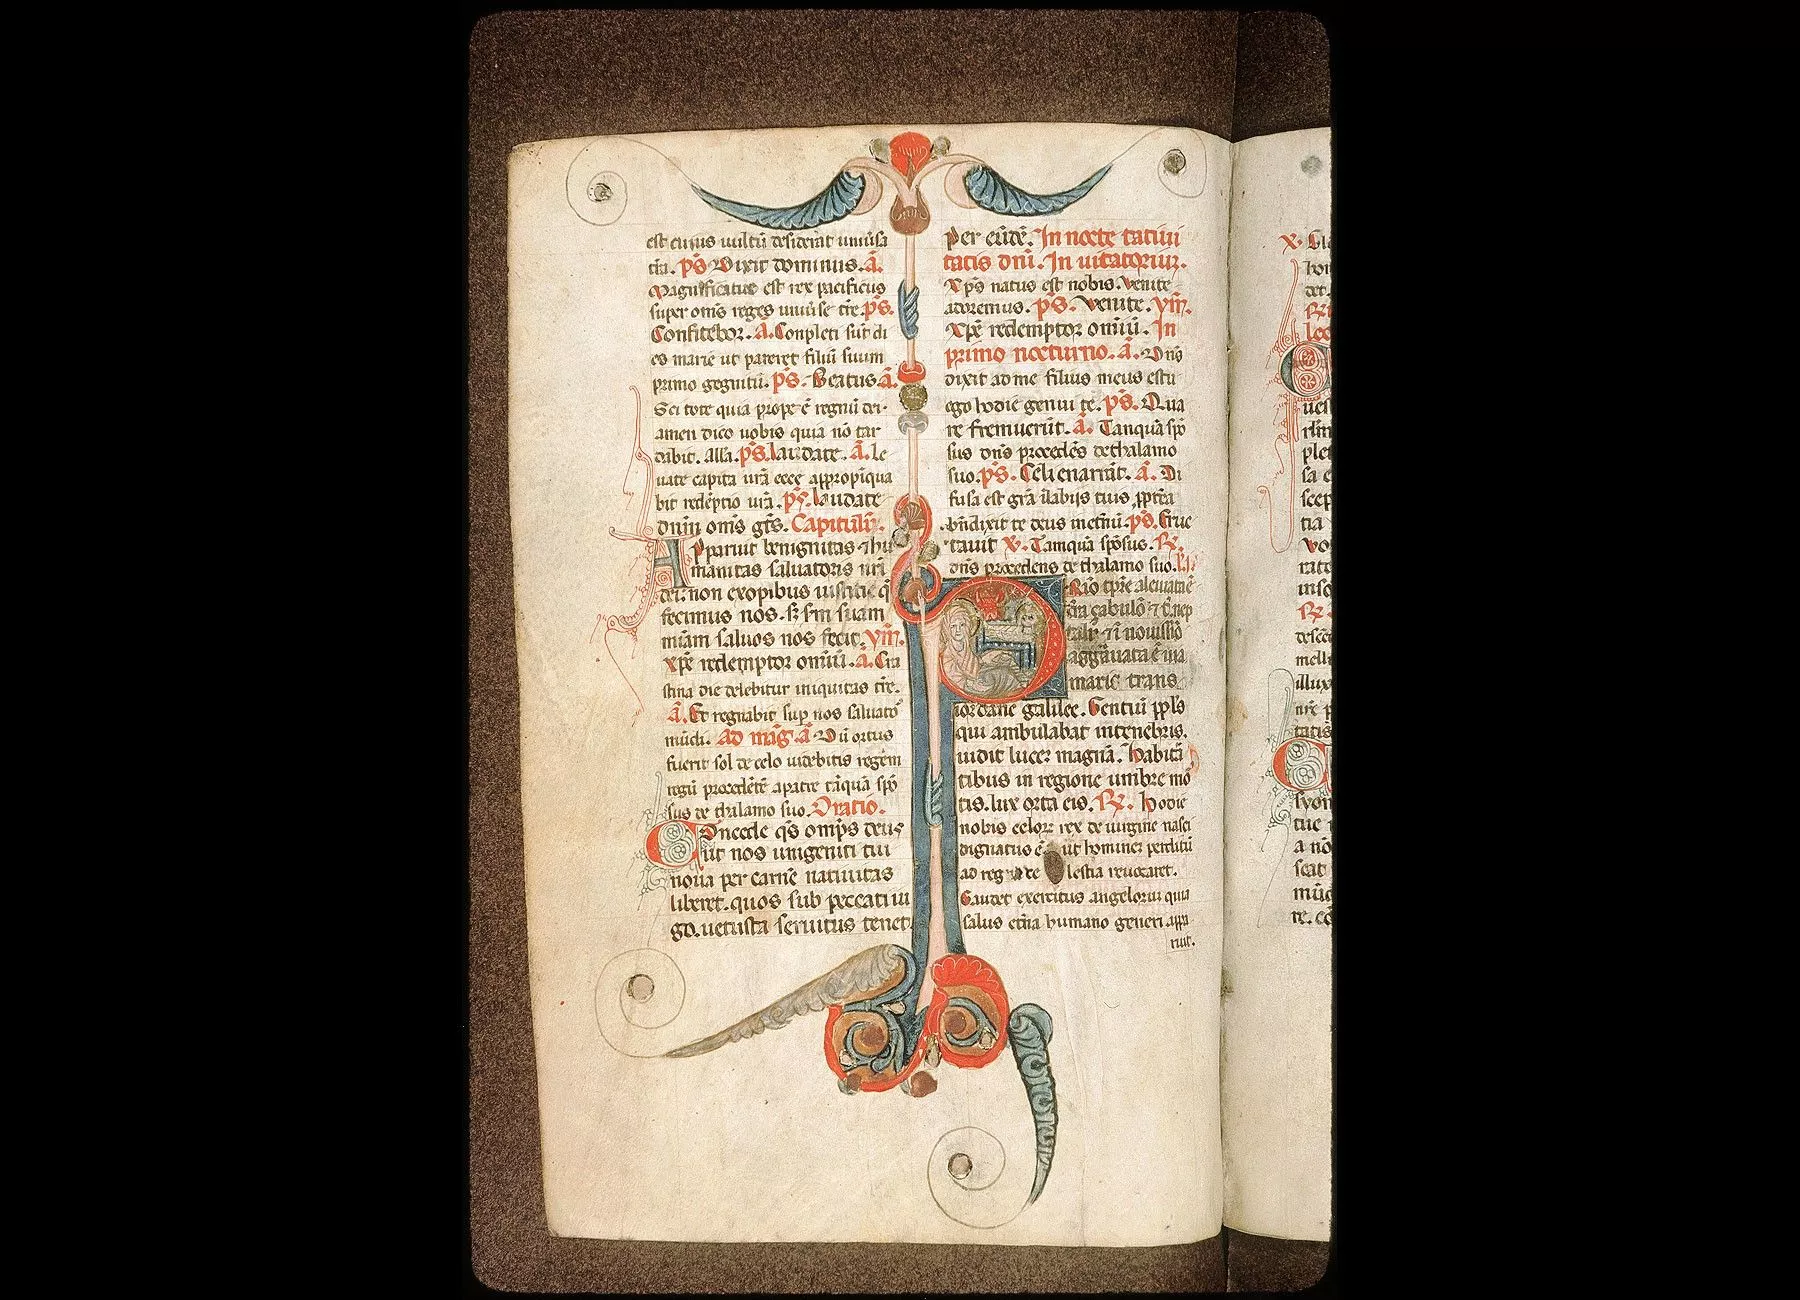 est cuius uultū desiderat uniu̾sa
t̄ra. p̄s. Dixit dominus. ā.
Magnificatus est rex pacificus
super om̄s reges uniu̾se tr̄e. p̄s.
Confitebor. ā. Conpleti sūt di
es marie ut pareret filiū suum
primo genitū. p̄s. Beatus. ā.
Scitote quia prope ē regnū dei.
amen dico uobis quia nō tar
dabit. All̄a. p̄s. laudate. ā. Le
uate capita ur̄a ecce appropīqua
bit redēptio ur̄a. p̄s. laudate
dn̄m om̄s gt̄s. Capitulū.
Apparuit benignitas ⁊ hu
manitas saluatoris nr̄i
dei. non ex opibus iusticie q̄
fecimus nos. s̄ s̄m suam
miā̄m saluos nos fecit. ym̄.
xp̄e redemptor omīū. ā. Cra
stina die delebitur iniquitas tr̄e.
ā. Et regnabit sup nos saluatō
mūdi. Ad mag. ā. Dū ortus
fuerit sol de celo uidebitis regem
regū procedētē a patre tāquā spō
sus de thalamo suo. Oratio.
Concede q̄s omp̄s deus
ut nos unigeniti tui
noua per carnē natiuitas
liberet. quos sub peccati iu
go. uetusta seruitus tenet.
Per eūdē. In nocte natiui
tatis dn̄i. Inuitatoriuꝫ.
Xp̄s natus est nobis. Venite
adoremus. p̄s. Venite. ym̄.
Xp̄e redemptor omīū. In
primo nocturno. ā. Dn̄s
dixit ad me filius meus es tu
ego hodie genui te. p̄s. Qua
re fremuerūt. ā. Tanquā spō
sus dn̄s procedēs de thalamo
suo. p̄s. Celi enarrāt. ā. Di
fusa est grā ī labijs tuis ꝓpt̾ea
bn̄dixit te deus in et̾nū. p̄s. Eruc
tauit. ℣. Tamquā spōsus. ℟.
dn̄s procedens de thalamo suo.
Primo tp̄re aleuiata ē
t̄ra çabulō ⁊ t̄ra nep
tali. ⁊ ī nouissīo
aggrauata ē uia
maris trans
iordanē galilee. Gentiū pp̄ls
qui ambulabat in tenebris.
uidit luceꝫ magnā. habitā
tibus in regione umbre mo
tis. lux orta eis. ℟. hodie
nobis celoꝝ rex de uirgine nasci
dignatus ē. ut hominēꝫ perditū
ad regna celestia reuocaret.
Gaudet exercitus angelorū quia
salus et̾na humano generi appa
ruit.